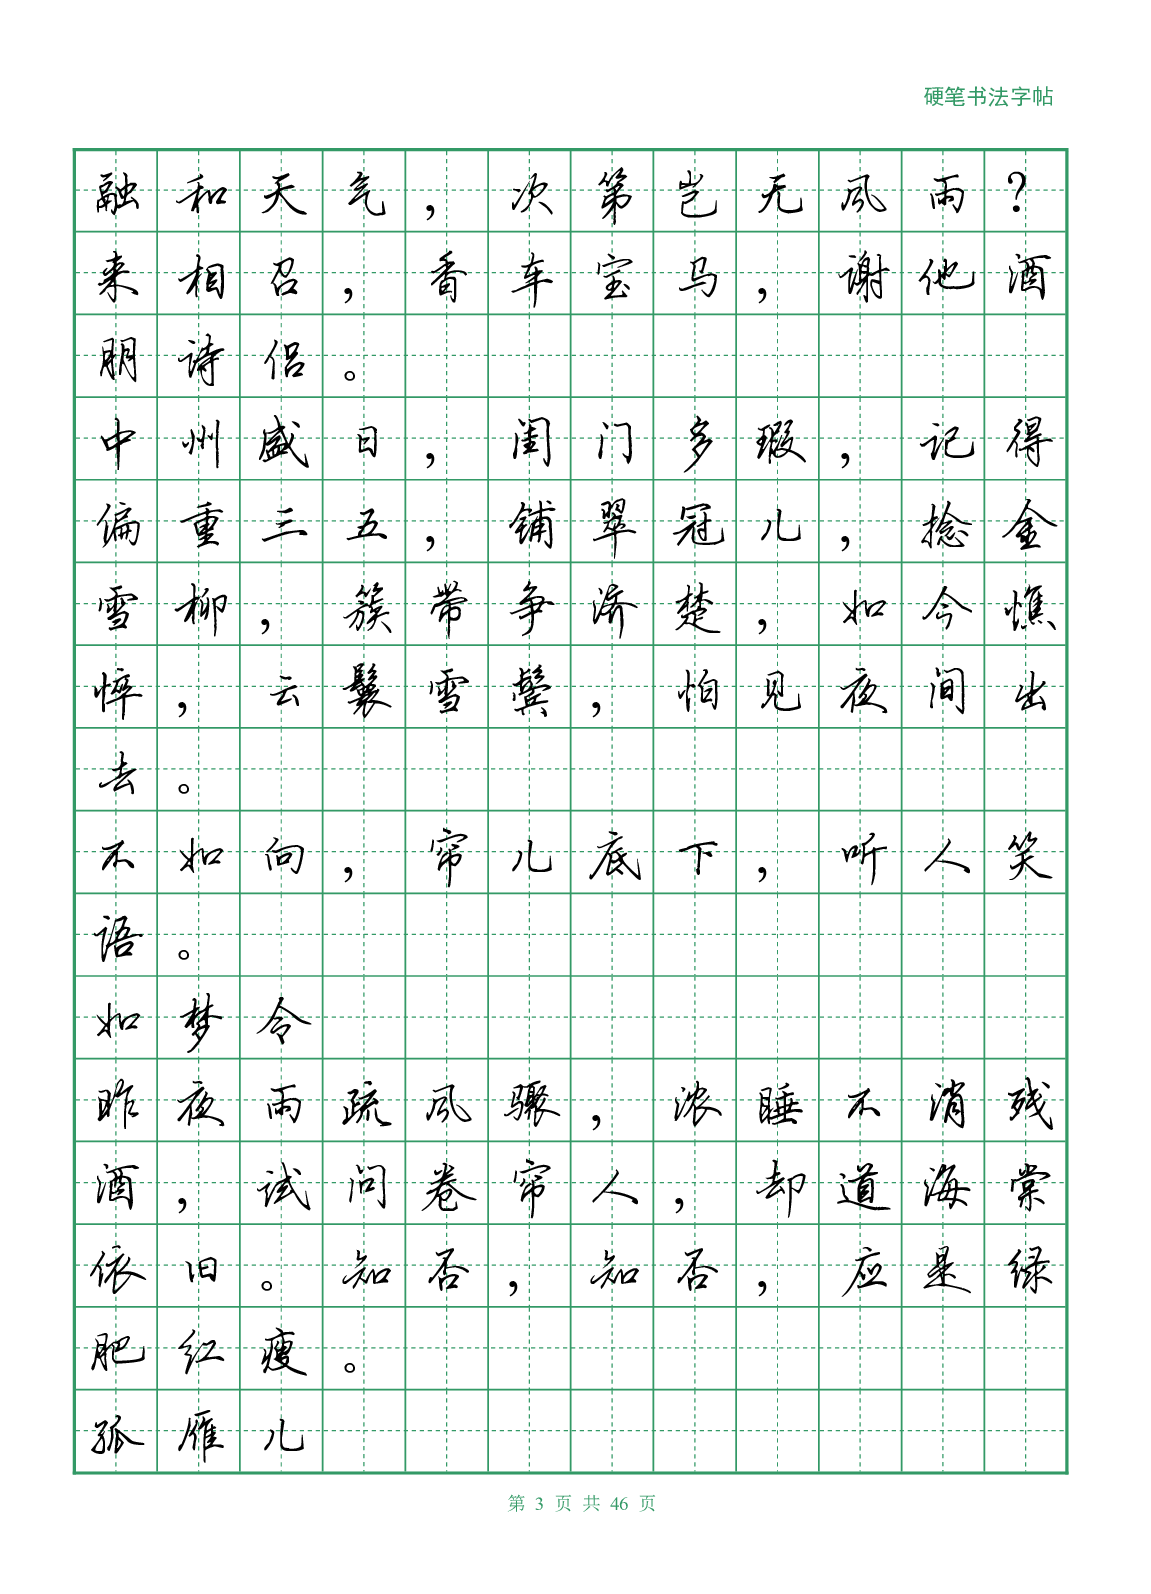 硬笔书法字帖
融和天气，次第岂无风雨？
来相召，香车宝马，谢他酒
朋诗侣。
中州盛日，闺门多瑕，记得
偏重三五，铺翠冠儿，捻金
雪柳，簇带争济楚，如今憔
悴，云鬟雪鬓，怕见夜间出
去。
不如向，帘儿底下，听人笑
语。
如梦令
昨夜雨疏风骤，浓睡不消残
酒，试问卷帘人，却道海棠
依旧。知否，知否，应是绿
肥红瘦。
孤雁儿
第 3 页 共 46 页